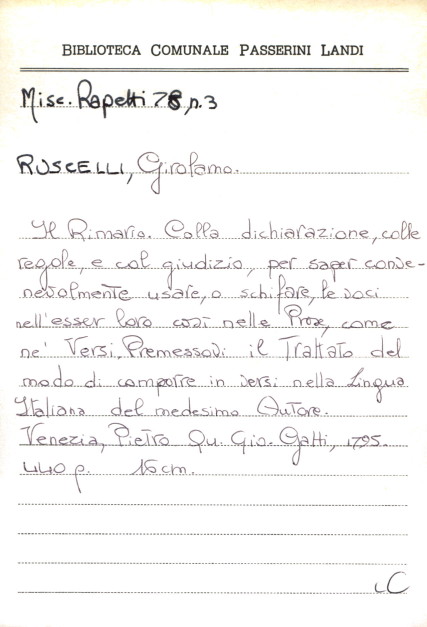 BIBLIOTECA COMUNALE PASSERINI LANDI
Misc. Rapetti 78, n. 3
RUSCELLI, Girolamo.
Il Rimario. Colla dichiarazione, colle
regole, e col giudizio, per saper conve-
nevolmente usare, o schifare, le voci
nell'esser loro così nelle Prose, come
ne' Versi. Premessovi il Trattato del
modo di comporre in versi nella Lingua
Italiana del medesimo Autore.
Venezia, Pietro Qu. Gio. Gatti, 1795.
440 p. 16 cm.
LC